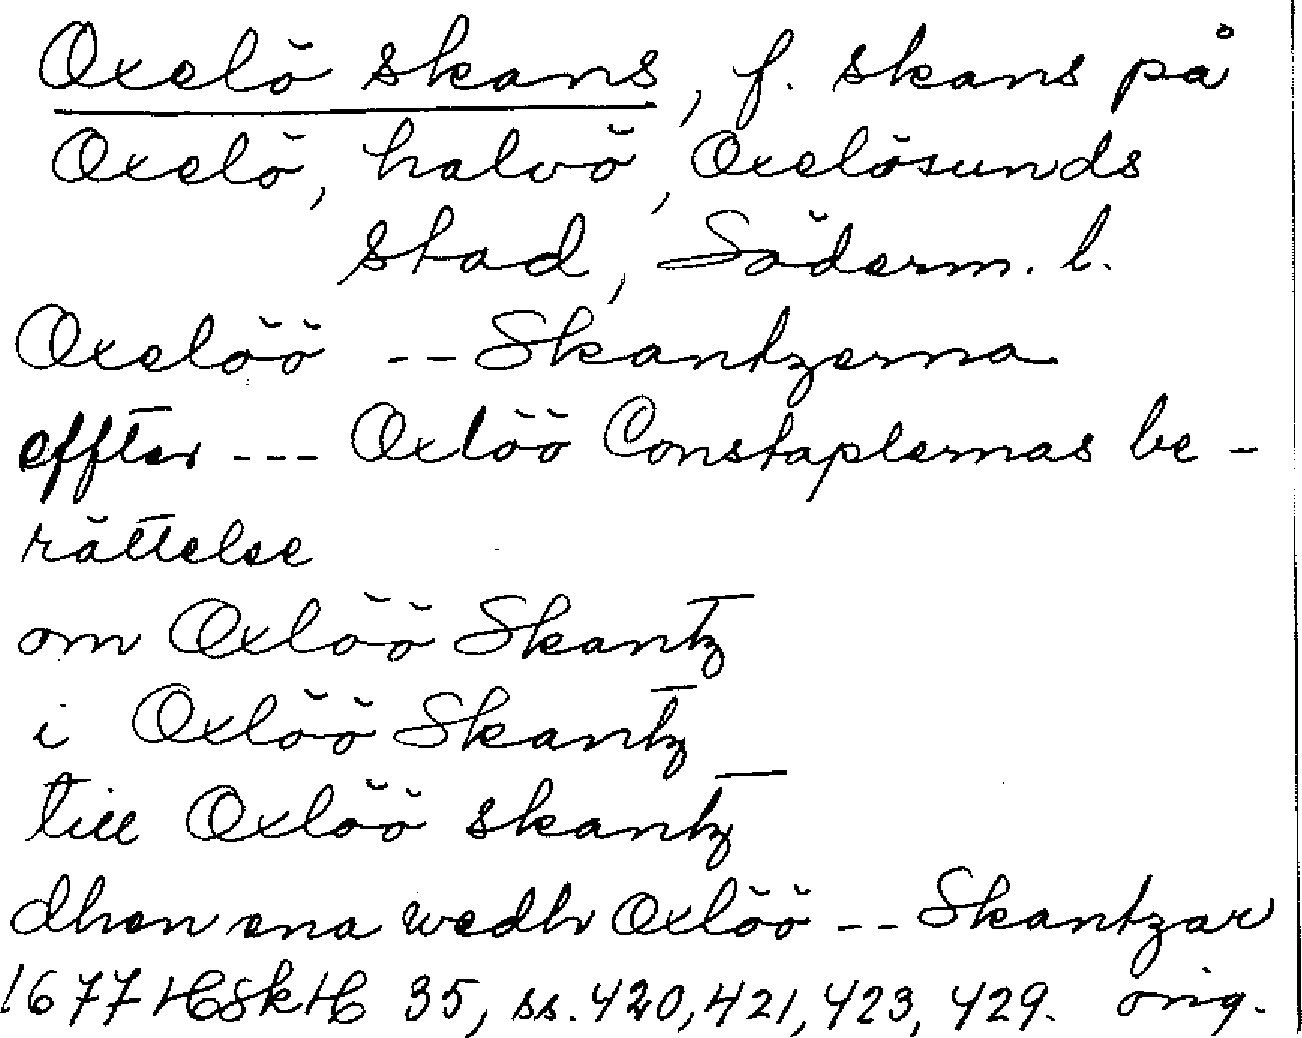 Oxelö skans, f. skans på
Oxelö, halvö, Oxelösunds
stad, Söderm. l.
Oxelöö -- Skantzerna
effter --- Oxlöö Constaplernas be-
rättelse
om Oxlöö Skantz
i Oxlöö Skantz
till Oxlöö skantz
dhen ena wedh Oxlöö -- Skantzar
1677 HSkH 35, ss. 420, 421, 423, 429. orig.